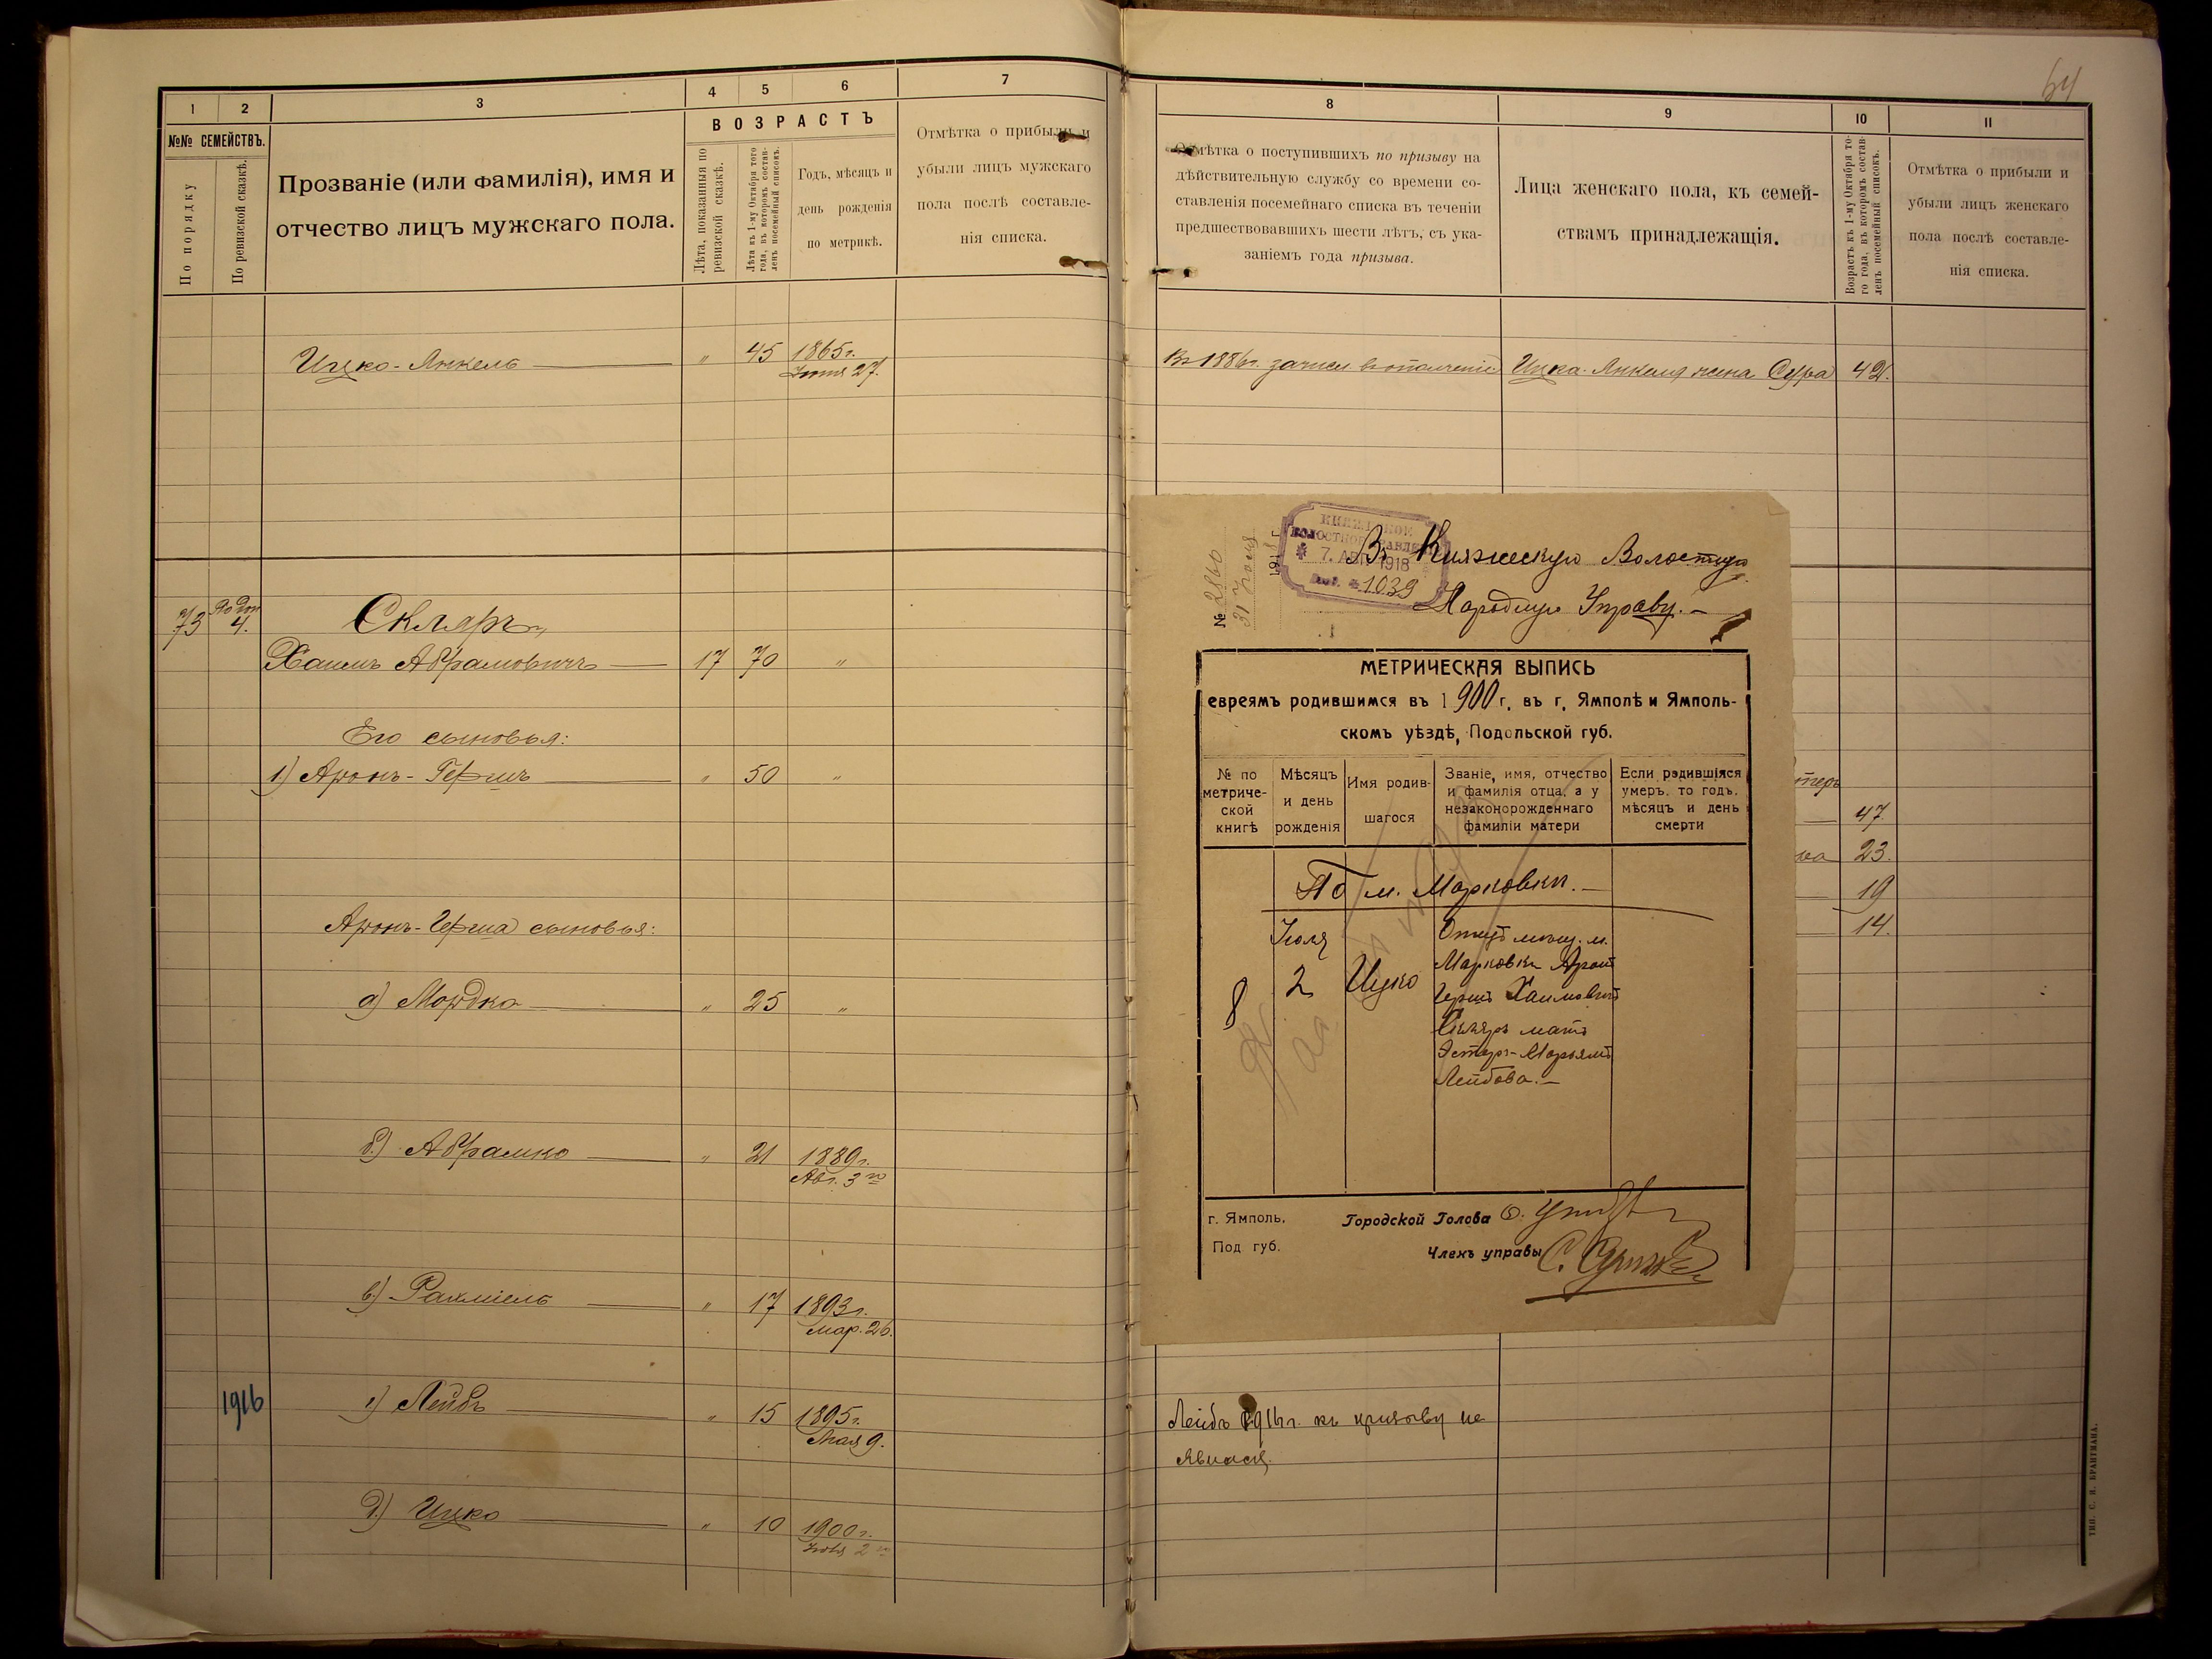 64
1 2 3 4 5 6 7
№№ СЕМЕЙСТВЪ.
По порядку
По ревизской сказкѣ.
Прозваніе (или фамилія), имя и
отчество лицъ мужскаго пола.
ВОЗРАСТЪ
Лѣта, показанныя по
ревизской сказкѣ.
Лѣта къ 1-му Октября того
года, въ которомъ состав-
ленъ посемейный списокъ.
Годъ, мѣсяцъ и
день рожденія
по метрикѣ.
Отмѣтка о прибыли и
убыли лицъ мужскаго
пола послѣ составле-
нія списка.
Ицко-Янкель „ 45 1865г.
27.
73 4. Скляръ,
Хаимъ Абрамовичъ 17 70 „
Его сыновья:
1) Аронъ-Гершъ „ 50 „
Аронъ-Герша сыновья:
а) Мордко „ 25 „
б) Абрамко „ 21 1889г.
Авг. 3го
в) Рахміель „ 17 1893г.
Мар. 26.
1916 г) Лейбъ „ 15 1895г.
Мая 9.
д) Ицко „ 10 1900г.
Іюля 2го
8 9 10 11
Отмѣтка о поступившихъ по призыву на
дѣйствительную службу со времени со-
ставленія посемейнаго списка въ теченіи
предшествовавшихъ шести лѣтъ, съ ука-
заніемъ года призыва.
Лица женскаго пола, къ семей-
ствамъ принадлежащія.
Возрастъ къ 1-му Октября то-
го года, въ которомъ состав-
ленъ посемейный списокъ.
Отмѣтка о прибыли и
убыли лицъ женскаго
пола послѣ составле-
нія списка.
Въ 1886г. зачисл. въ ополченіе Ицка-Янкеля жена Сура 42.
47.
23.
19
14.
№ 2860
31 Іюля
1918 г.
КНЯЖЕСКОЕ
ВОЛОСТНОЕ ПРАВЛЕНІЕ
7. АВГ. 1918
1039
Въ Княжескую Волостную
Народную Управу.—
МЕТРИЧЕСКАЯ ВЫПИСЬ
евреямъ родившимся въ 1900г. въ г. Ямполѣ и Ямполь-
скомъ уѣздѣ, Подольской губ.
№ по
метриче-
ской
книгѣ
Мѣсяцъ
и день
рожденія
Имя родив-
шагося
Званіе, имя, отчество
и фамилія отца, а у
незаконорожденнаго
фамиліи матери
Если рэдившіяся
умеръ, то годъ,
мѣсяцъ и день
смерти
По м. Марковки.—
8 Іюля
2 Ицко
Отецъ мѣщ. м.
Марковки Аронъ
Гершъ Хаимовичъ
Скляръ мать
Эстеръ-Марьямъ
Лейбова.—
г. Ямполь.
Под губ.
Городской Голова
Членъ управы
Лейбъ 1916г. къ призыву не
явился.
ТИП. С. И. БРАНГМАНА.